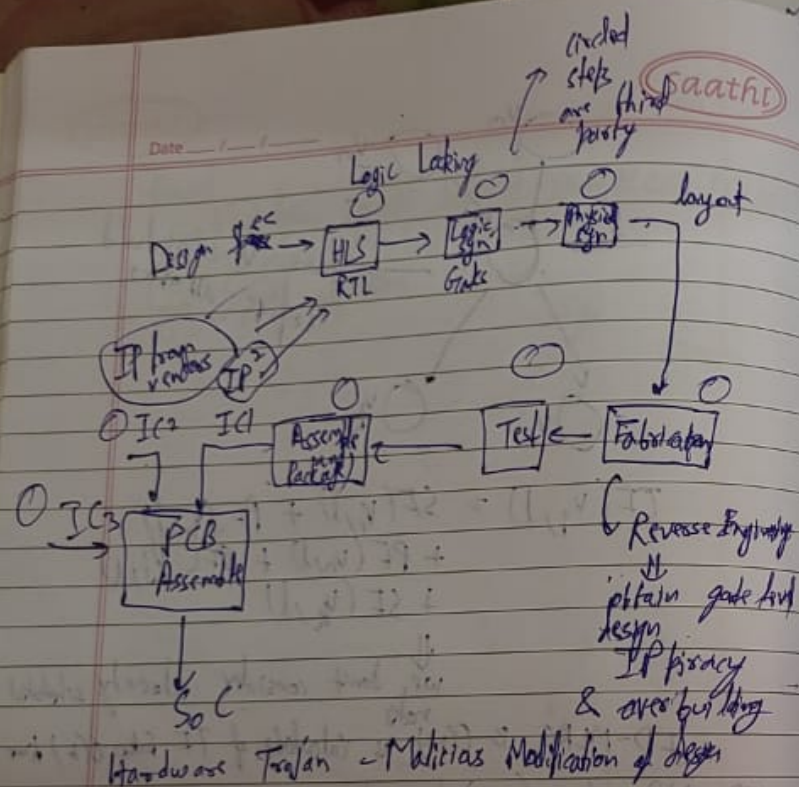 circled
steps
are third
party
Saathi
Date __/__/__
Logic Locking
Design Spec
HLS
RTL
Logic
syn
Gates
Physical
syn
layout
IP from
vendors
IP2
IC2
IC1
Assemble
Package
Test
Fabrication
IC3
PCB
Assemble
Reverse Enginering
obtain gate level
design
IP piracy
& over building
SoC
Hardware Trojan - Malicias Modification of design